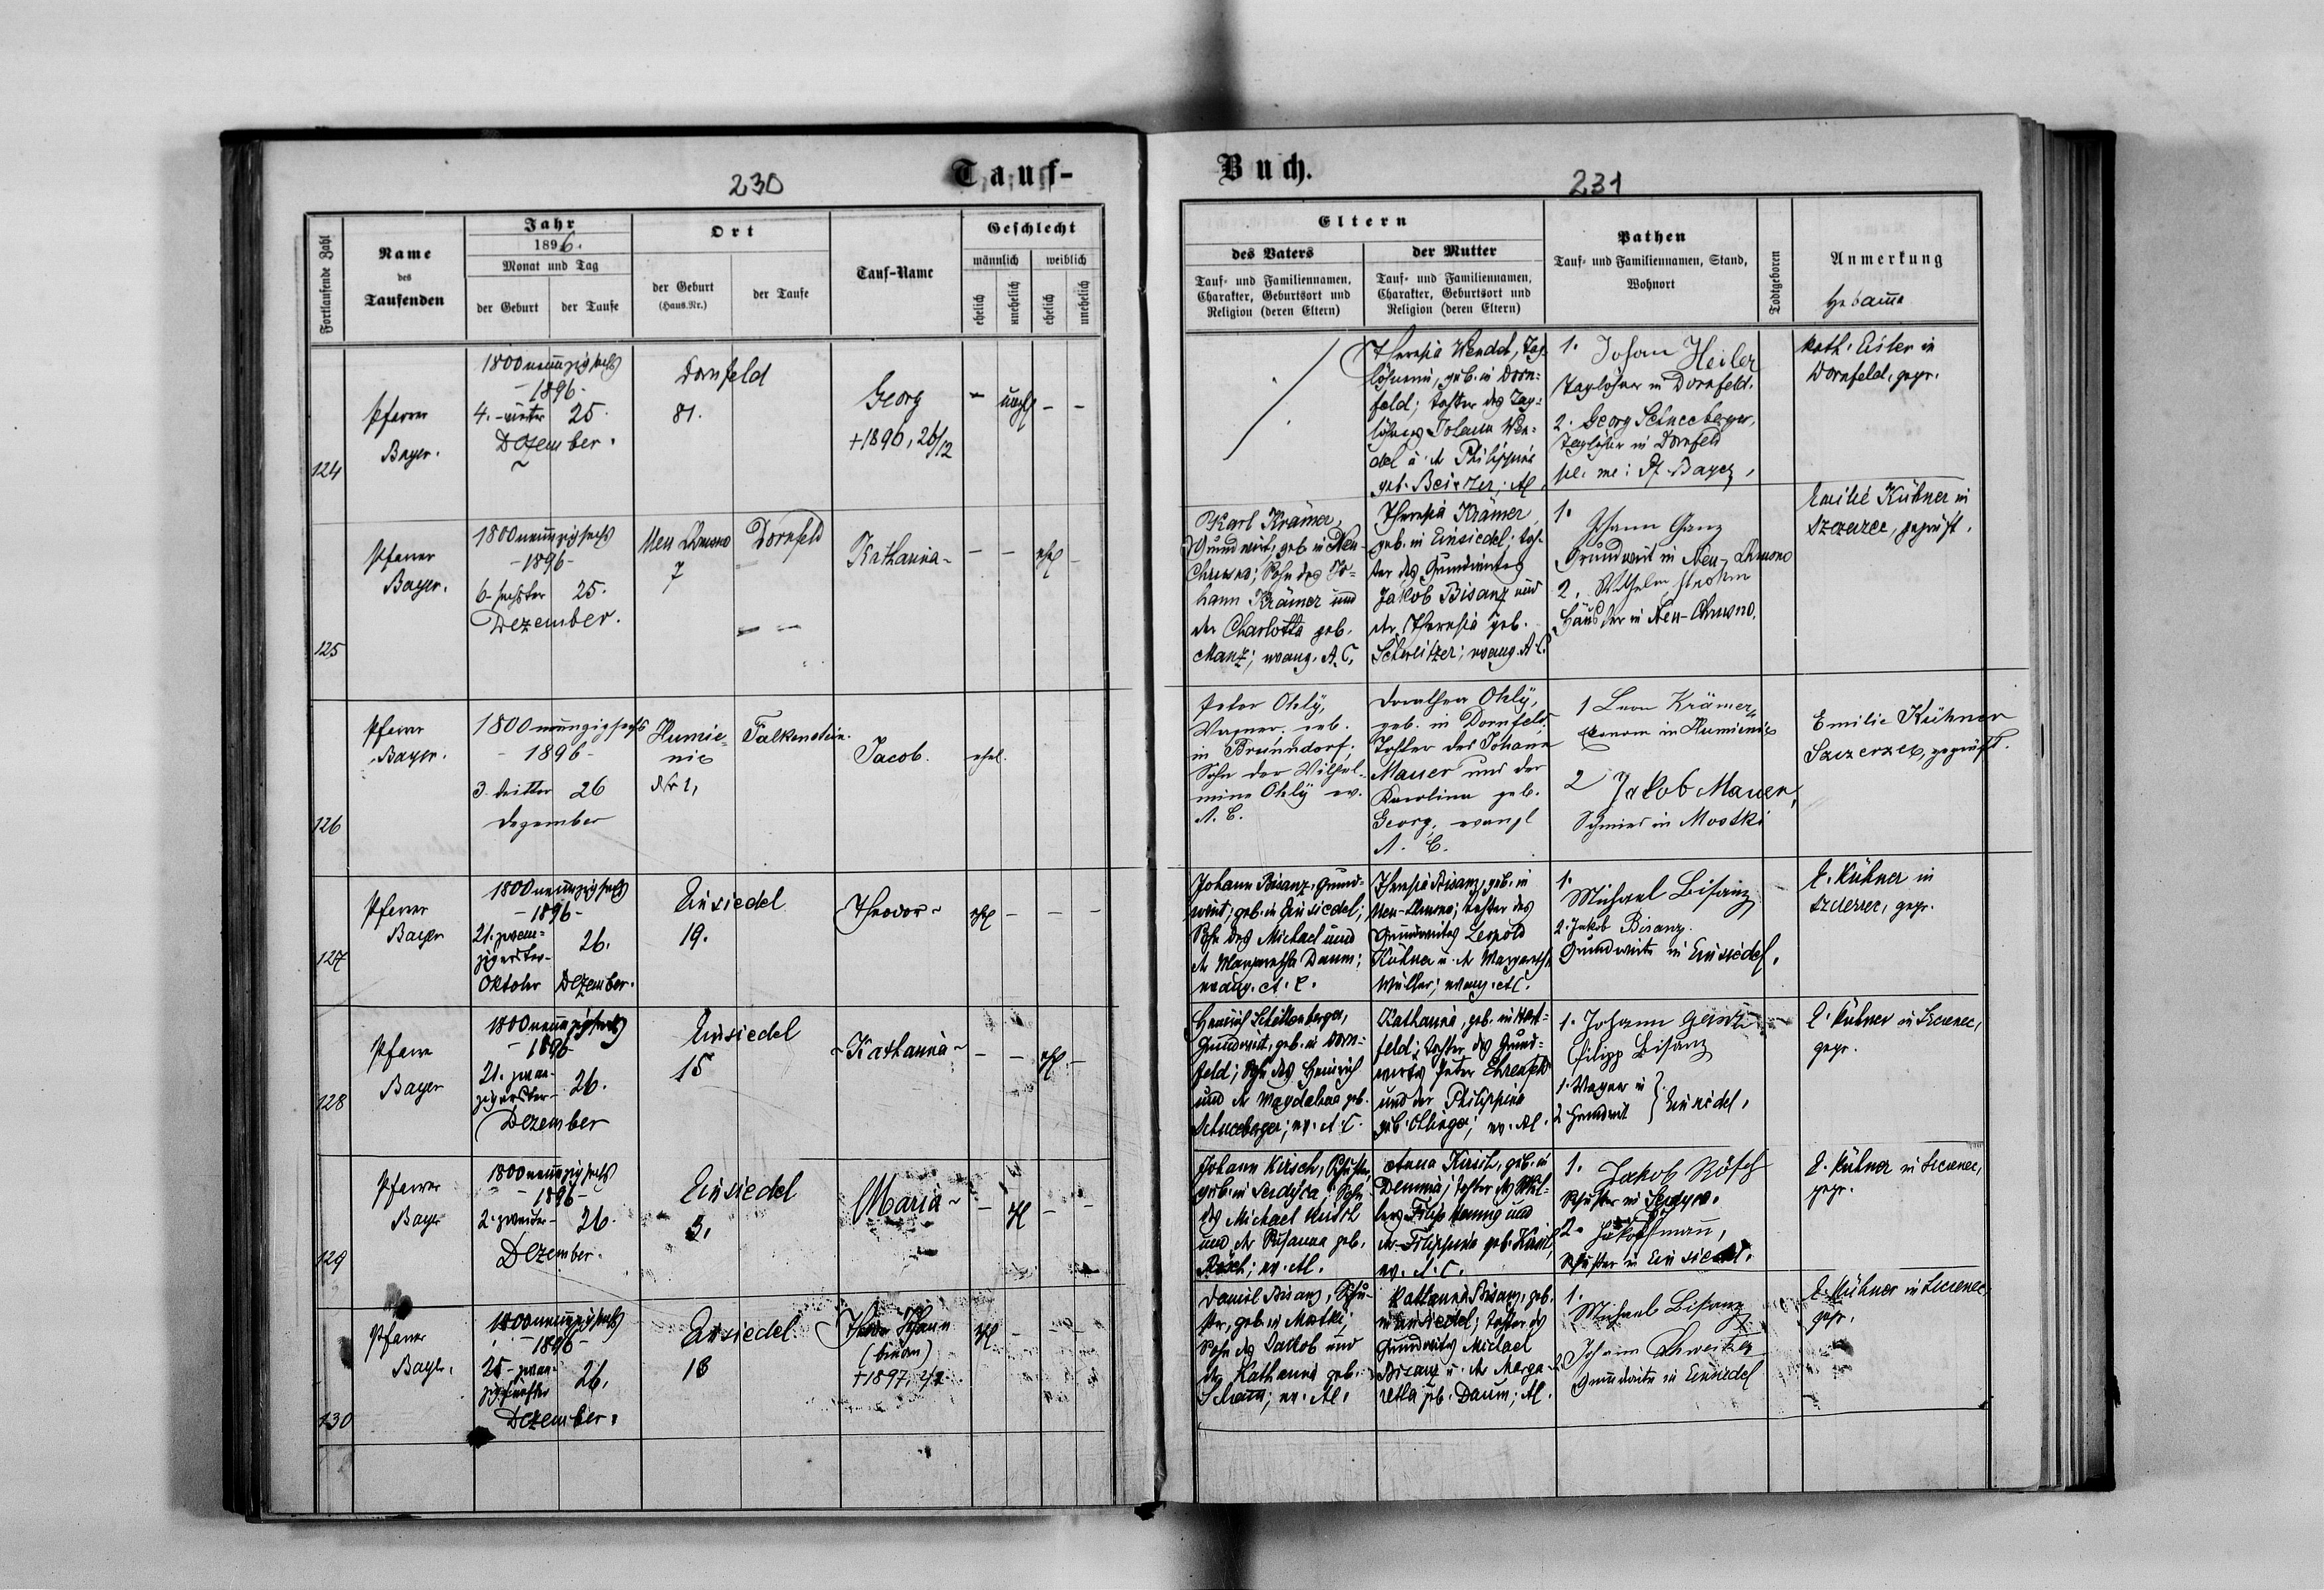 230
Tauf-
Fortlaufende Zahl
Name
des
Taufenden
Jahr
1896.
Monat und Tag
der Geburt
der Taufe
Ort
der Geburt
(Haus-Nr.)
der Taufe
Tauf-Name
Geschlecht
männlich
weiblich
ehelich
unehelich
ehelich
unehelich
124
Pfarrer
Bayer.
1800neunzigsechs
-1896-
4.-vierter 25.
Dezember.
Dornfeld
81.
Georg
+1896, 26/12
- unehl - -
125
Pfarrer
Bayer.
1800neunzigsechs
-1896-
6-sechster 25.
Dezember.
Neu Chrusno
7
Dornfeld
Katharina-
- - ehl -
126
Pfarrer
Bayer.
1800neunzigsechs
- 1896-
3. dritter 26
Dezember
Humie-
niec
Nr 1,
Falkenstein.
Jacob.
ehel.
127
Pfarrer
Bayer
1800neunzigsechs
-1896-
21. zwan-
zigerster- 26.
Oktober Dezember.
Einsiedel
19.
Theodor-
ehl - - -
128
Pfarrer
Bayer
1800neunzigsechs
-1896
21. zwan-
zigerster- 26.
Dezember
Einsiedel
15
-Katharina-
- - ehl -
129
Pfarrer
Bayer
1800neunzigsechs
-1896-
2.-zweiter- 26.
Dezember.
Einsiedel
5.
Maria-
130
Pfarrer
Bayer.
1800neunzigsechs
-1896-
25-zwan-
zigfünfter 26.
Dezember.
Einsiedel
18
Johann
+1897,
ehl - - -
Buch.
231
Eltern
des Vaters
Tauf- und Familiennamen,
Charakter, Geburtsort und
Religion (deren Eltern)
der Mutter
Tauf- und Familiennamen,
Charakter, Geburtsort und
Religion (deren Eltern)
Pathen
Tauf- und Familiennamen, Stand,
Wohnort
Todtgeboren
Anmerkung
Hebamme
Theresia Wendel, Tag-
löhnerin, geb. in Dorn-
feld; Tochter des Tag-
löhners Johann Wen-
del u. der Philippine
geb. AC
1. Johann Heiler
Taglöhner in Dornfeld.
2. Georg Schneeberger,
Taglöhner in Dornfeld
Bayer,
Kath. Eisler in
Dornfeld, gepr.
Karl Krämer,
Grundwirt, geb. in Neu-
Chrusno; Sohn des Jo-
hann Krämer und
der Charlotta geb.
Manz; evang. A.C.
Theresia Krämer
geb. in Einsiedel; Toch-
ter des Grundwirtes
Jakob Bisanz und
der Theresia geb.
Schweitzer; evang. A.C.
1.
Johann Ganz
Grundwirt in Neu-Chrusno
2. Wilhelm Strohm
Häusler in Neu-Chrusno.
Emilie Kühner in
Szczerzec, geprüft.
Peter Ohly,
Wagner, geb.
in Brunndorf;
Sohn der Wilhel-
mine Ohly ev.
A. C.
Dorothea Ohly,
geb. in Dornfeld,
Tochter des Johann
Mauer und der
Karolina geb.
Georg; evangl
A. C.
1 Leon Krämer,
Ökonom in Humieniec
2 Jakob Mauer,
Schmied in Mostki
Emilie Kühner
Szczerzec, geprüft.
Johann Bisanz, Grund-
wirt; geb. in Einsiedel;
Sohn des Michael und
der Margaretha Daum;
evang. A. C.
Theresia Bisanz, geb. in
Neu-Chrusno; Tochter des
Grundwirtes Leopold
Kühner u. der Margareth.
Müller; evang. AC.
1.
Michael Bisanz
2. Jakob Bisanz.
Grundwirte in Einsiedel.
E. Kühner in
Szczerzec, gepr.
Heinrich Schellenberger,
Grundwirt, geb. in Dorn-
feld; Sohn des Heinrich
und der Magdalena geb.
Schneeberger; ev. A.C.
Katharina, geb. in
feld; Tochter des Grund-
wirtes Peter Ehrenfeld
und der Philippine
geb. Ottinger; ev. AC.
1. Johann
Filipp Bisanz
1. Wagner in
2 Grundwirt } Einsiedel.
E. Kühner in Szczerzec,
gepr.
Johann Kirsch, Schuster,
geb. in Serdyca; Sohn
des Michael Kirsch
und der Susanna geb.
Rösch; ev. AC.
Anna Kirsch, geb. in
Demnia; Tochter des
Filipp und
der Filippine geb.
ev. A.C.
1. Jakob Rösch
Schuster in Serdyca.
2.
Schuster in Einsiedel.
E. Kühner in Szczerzec,
gepr.
Daniel Bisanz, Schu-
ster, geb. in Mostki,
Sohn des Jakob und
der Katharina geb.
ev. AC.
Katharina Bisanz, geb.
in Einsiedel; Tochter des
Grundwirtes Michael
Bisanz u. der Marga-
retha geb. Daum; AC.
1.
Michael Bisanz
2. Johann Schweitzer
Grundwirte in Einsiedel
E. Kühner in Szczerzec
gepr.